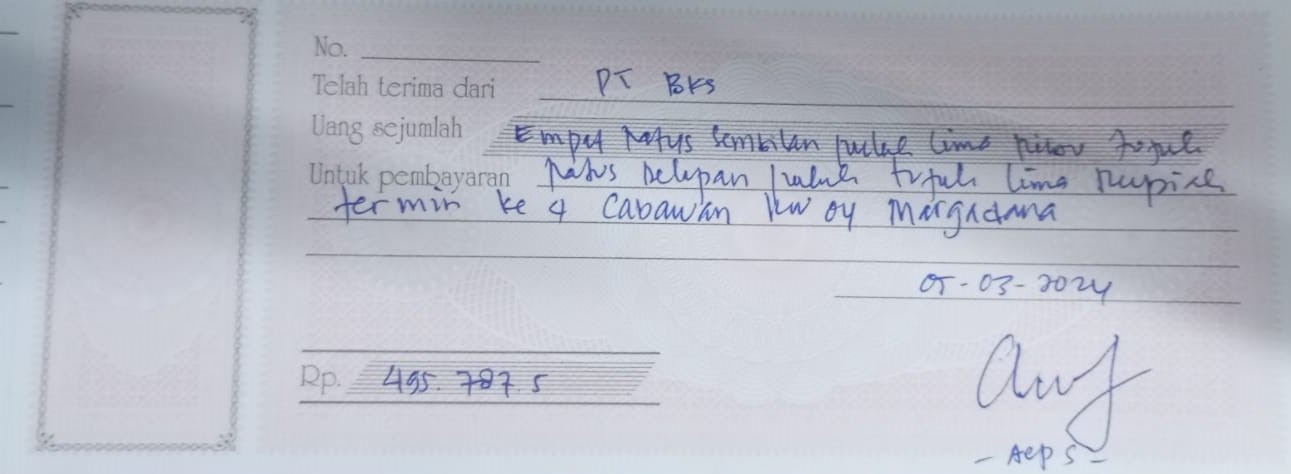 No.
Telah terima dari PT BKS
Uang sejumlah Empat Ratus Sembilan puluh lima ribu tujuh
Untuk pembayaran Ratus Delapan puluh tujuh lima Rupiah
termin ke 4 Cabawan RW 04 Margadana
05-03-2024
Rp. 495.787.5
- Aep S -